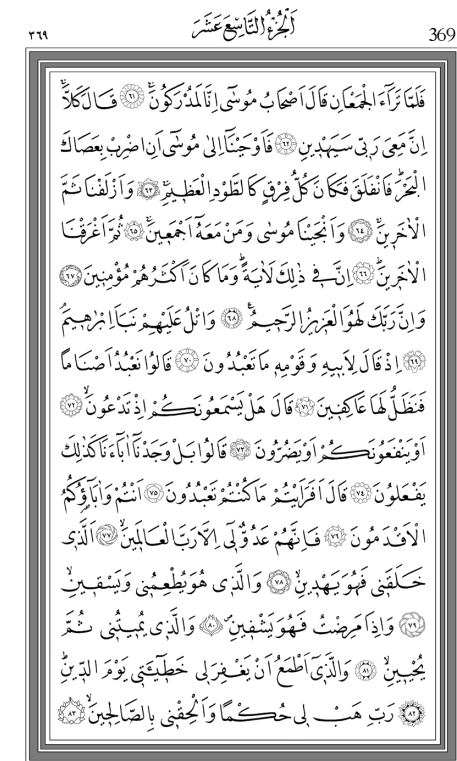 ٣٦٩ اَلْجُزْءُ التَّاسِعَ عَشَرَ 369
فَلَمَّا تَرَٓاءَ الْجَمْعَانِ قَالَ اَصْحَابُ مُوسٰٓى اِنَّا لَمُدْرَكُونَۚ ﴿٦١﴾ قَالَ كَلَّاۚ
اِنَّ مَعِيَ رَبّ۪ي سَيَهْد۪ينِ ﴿٦٢﴾ فَاَوْحَيْنَٓا اِلٰى مُوسٰٓى اَنِ اضْرِبْ بِعَصَاكَ
الْبَحْرَۜ فَانْفَلَقَ فَكَانَ كُلُّ فِرْقٍ كَالطَّوْدِ الْعَظ۪يمِۚ ﴿٦٣﴾ وَاَزْلَفْنَا ثَمَّ
الْاٰخَر۪ينَۚ ﴿٦٤﴾ وَاَنْجَيْنَا مُوسٰى وَمَنْ مَعَهُٓ اَجْمَع۪ينَۚ ﴿٦٥﴾ ثُمَّ اَغْرَقْنَا
الْاٰخَر۪ينَۜ ﴿٦٦﴾ اِنَّ ف۪ي ذٰلِكَ لَاٰيَةًۜ وَمَا كَانَ اَكْثَرُهُمْ مُؤْمِن۪ينَ ﴿٦٧﴾
وَاِنَّ رَبَّكَ لَهُوَ الْعَز۪يزُ الرَّح۪يمُ۟ ﴿٦٨﴾ وَاتْلُ عَلَيْهِمْ نَبَاَ اِبْرٰه۪يمَۢ
﴿٦٩﴾ اِذْ قَالَ لِاَب۪يهِ وَقَوْمِه۪ مَا تَعْبُدُونَ ﴿٧٠﴾ قَالُوا نَعْبُدُ اَصْنَامًا
فَنَظَلُّ لَهَا عَاكِف۪ينَ ﴿٧١﴾ قَالَ هَلْ يَسْمَعُونَكُمْ اِذْ تَدْعُونَۙ ﴿٧٢﴾
اَوْ يَنْفَعُونَكُمْ اَوْ يَضُرُّونَ ﴿٧٣﴾ قَالُوا بَلْ وَجَدْنَٓا اٰبَٓاءَنَا كَذٰلِكَ
يَفْعَلُونَ ﴿٧٤﴾ قَالَ اَفَرَاَيْتُمْ مَا كُنْتُمْ تَعْبُدُونَۙ ﴿٧٥﴾ اَنْتُمْ وَاٰبَٓاؤُ۬كُمُ
الْاَقْدَمُونَ ﴿٧٦﴾ فَاِنَّهُمْ عَدُوٌّ ل۪ٓي اِلَّا رَبَّ الْعَالَم۪ينَۙ ﴿٧٧﴾ اَلَّذ۪ي
خَلَقَن۪ي فَهُوَ يَهْد۪ينِۙ ﴿٧٨﴾ وَالَّذ۪ي هُوَ يُطْعِمُن۪ي وَيَسْق۪ينِۙ
﴿٧٩﴾ وَاِذَا مَرِضْتُ فَهُوَ يَشْف۪ينِۖ ﴿٨٠﴾ وَالَّذ۪ي يُم۪يتُن۪ي ثُمَّ
يُحْي۪ينِۙ ﴿٨١﴾ وَالَّذ۪ٓي اَطْمَعُ اَنْ يَغْفِرَ ل۪ي خَط۪ٓيـَٔت۪ي يَوْمَ الدّ۪ينِۜ
﴿٨٢﴾ رَبِّ هَبْ ل۪ي حُكْمًا وَاَلْحِقْن۪ي بِالصَّالِح۪ينَۙ ﴿٨٣﴾